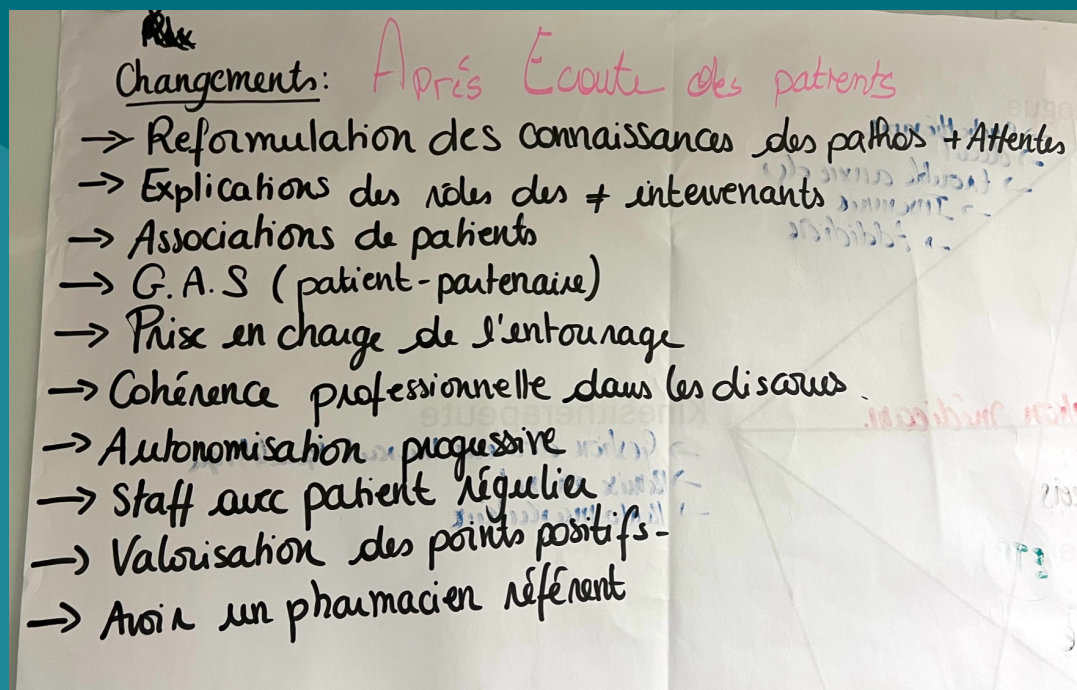 Changements: Après Ecoute des patients
→ Reformulation des connaissances des pathos + Attentes
→ Explications des rôles des ≠ intervenants
→ Associations de patients
→ G.A.S (patient-partenaire)
→ Prise en charge de l'entourage
→ Cohérence professionnelle dans les discours.
→ Autonomisation progressive
→ Staff avec patient régulier
→ Valorisation des points positifs-
→ Avoir un pharmacien référent
Kinésithérapeute